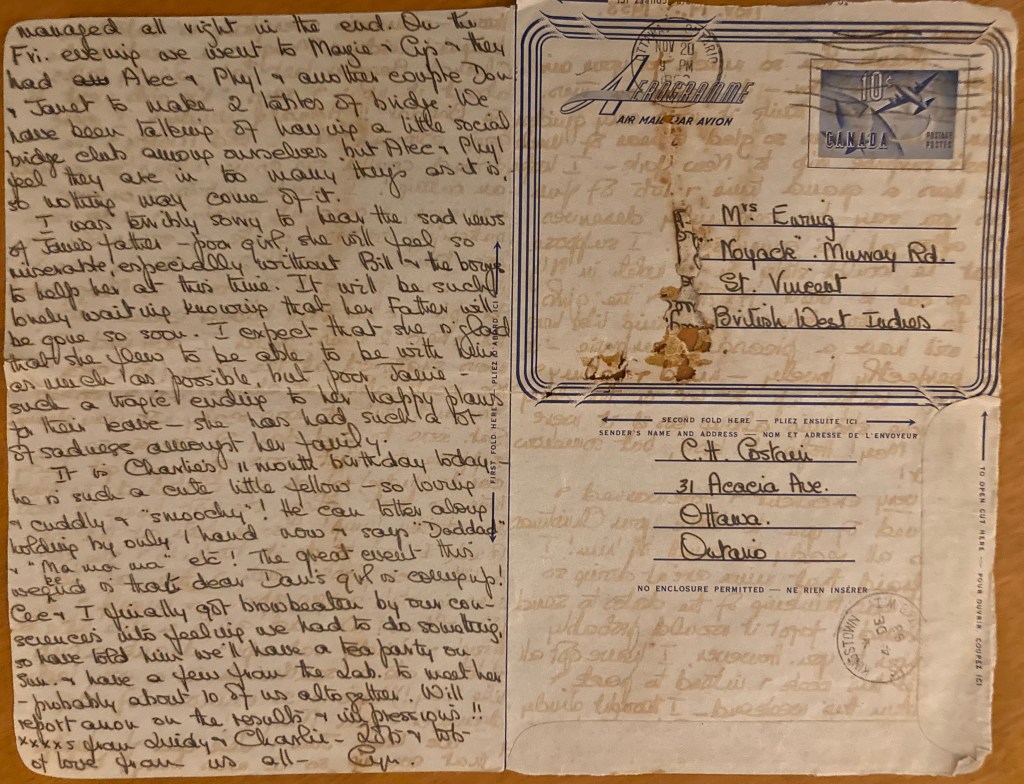 managed all right in the end. On the
Fri. evening we went to Marjie & Cyp & they
had Alec & Phyl & another couple Don
& Janet to make 2 tables of bridge. We
have been talking of having a little social
bridge club among ourselves, but Alec & Phyl
feel they are in too many things as it is,
so nothing may come of it.
I was terribly sorry to hear the sad news
of Janie's father – poor girl, she will feel so
miserable, especially without Bill & the boys
to help her at this time. It will be such
lonely waiting knowing that her Father will
be gone so soon. I expect that she is glad
that she flew to be able to be with him
as much as possible, but poor Janie –
such a tragic ending to her happy plans
for their leave – she has had such a lot
of sadness amongst her family.
It is Charlie's 11 month birthday today –
he is such a cute little fellow – so loving
& cuddly & "smoochy"! He can totter along
holding by only 1 hand now & says "Daddad"
& "Ma ma ma" etc! The great event this
weekend is that dear Dan's girl is coming up!
Cec & I finally got browbeaten by our con-
sciences into feeling we had to do something,
so have told him we'll have a tea party on
Sun. & have a few from the Lab. to meet her
– probably about 10 of us altogether. Will
report anon on the results & impressions!!
xxxxs from Lindy & Charlie – Lots & lots
of love from us all – Cyn.
FIRST FOLD HERE — PLIEZ D'ABORD ICI
OTTAWA ONTARIO
NOV 20
9 PM
AEROGRAMME
AIR MAIL PAR AVION
10¢
CANADA
POSTAGE
POSTES
Mrs Ewing
"Noyade" Murray Rd.
St. Vincent
British West Indies
SECOND FOLD HERE — PLIEZ ENSUITE ICI
SENDER'S NAME AND ADDRESS — NOM ET ADRESSE DE L'ENVOYEUR
C.H. Costain
31 Acacia Ave.
Ottawa.
Ontario
NO ENCLOSURE PERMITTED — NE RIEN INSÉRER
KINGSTOWN
TO OPEN CUT HERE — POUR OUVRIR COUPEZ ICI